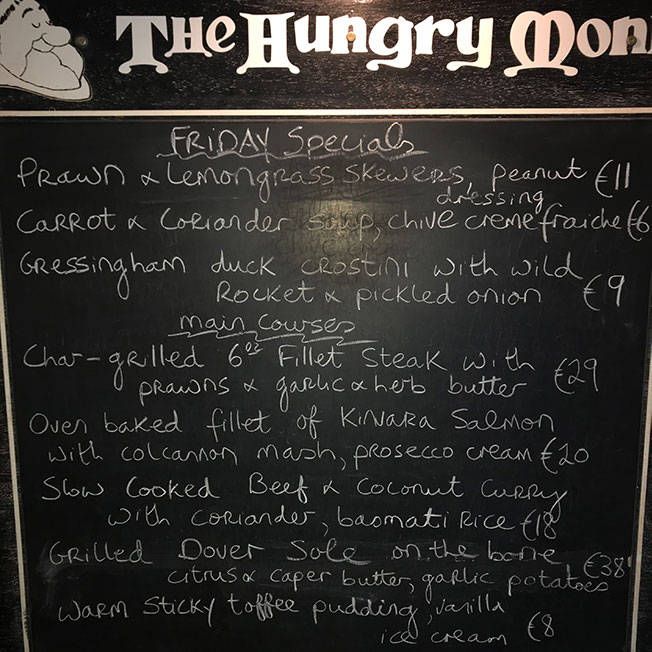 The Hungry Mon
FRIDAY Specials
PRAWN & Lemongrass Skewers, peanut €11
dressing
CARROT & Coriander soup, chive creme fraiche €6
Gressingham duck crostini with wild
Rocket & pickled onion €9
main courses
Char-grilled 6oz Fillet Steak with €29
prawns & garlic & herb butter
Oven baked fillet of Kinvara Salmon
with colcannon mash, prosecco cream €20
Slow Cooked Beef & Coconut Curry
with coriander, basmati Rice €18
Grilled Dover Sole on the bone €38
citrus & caper butter, garlic potatoes
Warm Sticky toffee pudding, vanilla
ice cream €8